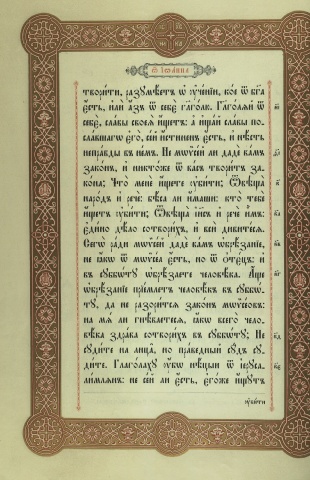 Ѿ іѡа́нна
твори́ти, разꙋмѣ́етъ ѡ҆ ᲂу҆че́нїи, ко́е ѿ бг҃а
є҆́сть, и҆лѝ а҆́зъ ѿ себє̀ гл҃го́лю. Глаго́лѧй ѿ
себє̀, сла́вы своеѧ̀ и҆́щетъ: а҆ и҆щѧ́й сла́вы по-
сла́вшагѡ є҆го̀, се́й и҆́стиненъ є҆́сть, и҆ нѣ́сть
непра́вды въ не́мъ. Не мѡѷсе́й ли дадѐ ва́мъ
зако́нъ, и҆ никто́же ѿ ва́съ твори́тъ за-
ко́на; Что̀ менѐ и҆́щете ᲂу҆би́ти; Ѿвѣща̀
наро́дъ и҆ речѐ: бѣ́са ли и҆́маши: кто̀ тебѐ
и҆́щетъ ᲂу҆би́ти; Ѿвѣща̀ і҆и҃съ и҆ речѐ и҆̀мъ:
є҆ди́но дѣ́ло сотвори́хъ, и҆ всѝ диви́тесѧ.
Сегѡ̀ ра́ди мѡѷсе́й дадѐ ва́мъ ѡ҆брѣ́занїе,
не ꙗ҆́кѡ ѿ мѡѷсе́а є҆́сть, но ѿ ѻ҆тє́цъ: и҆
въ сꙋббѡ́тꙋ ѡ҆брѣ́заете человѣ́ка. А҆́ще
ѡ҆брѣ́занїе прїе́млетъ человѣ́къ въ сꙋббѡ́-
тꙋ, да не разори́тсѧ зако́нъ мѡѷсе́овъ:
на мѧ̀ ли гнѣ́ваетесѧ, ꙗ҆́кѡ всего̀ чело-
вѣ́ка здра́ва сотвори́хъ въ сꙋббѡ́тꙋ; Не
сꙋди́те на лица̑, но пра́ведный сꙋ́дъ сꙋ-
ди́те. Глаго́лахꙋ ᲂу҆̀бо нѣ́цыи ѿ і҆ерⷭ҇ли-
млѧ́нъ: не се́й ли є҆́сть, є҆го́же и҆́щꙋтъ
ᲂу҆би́ти